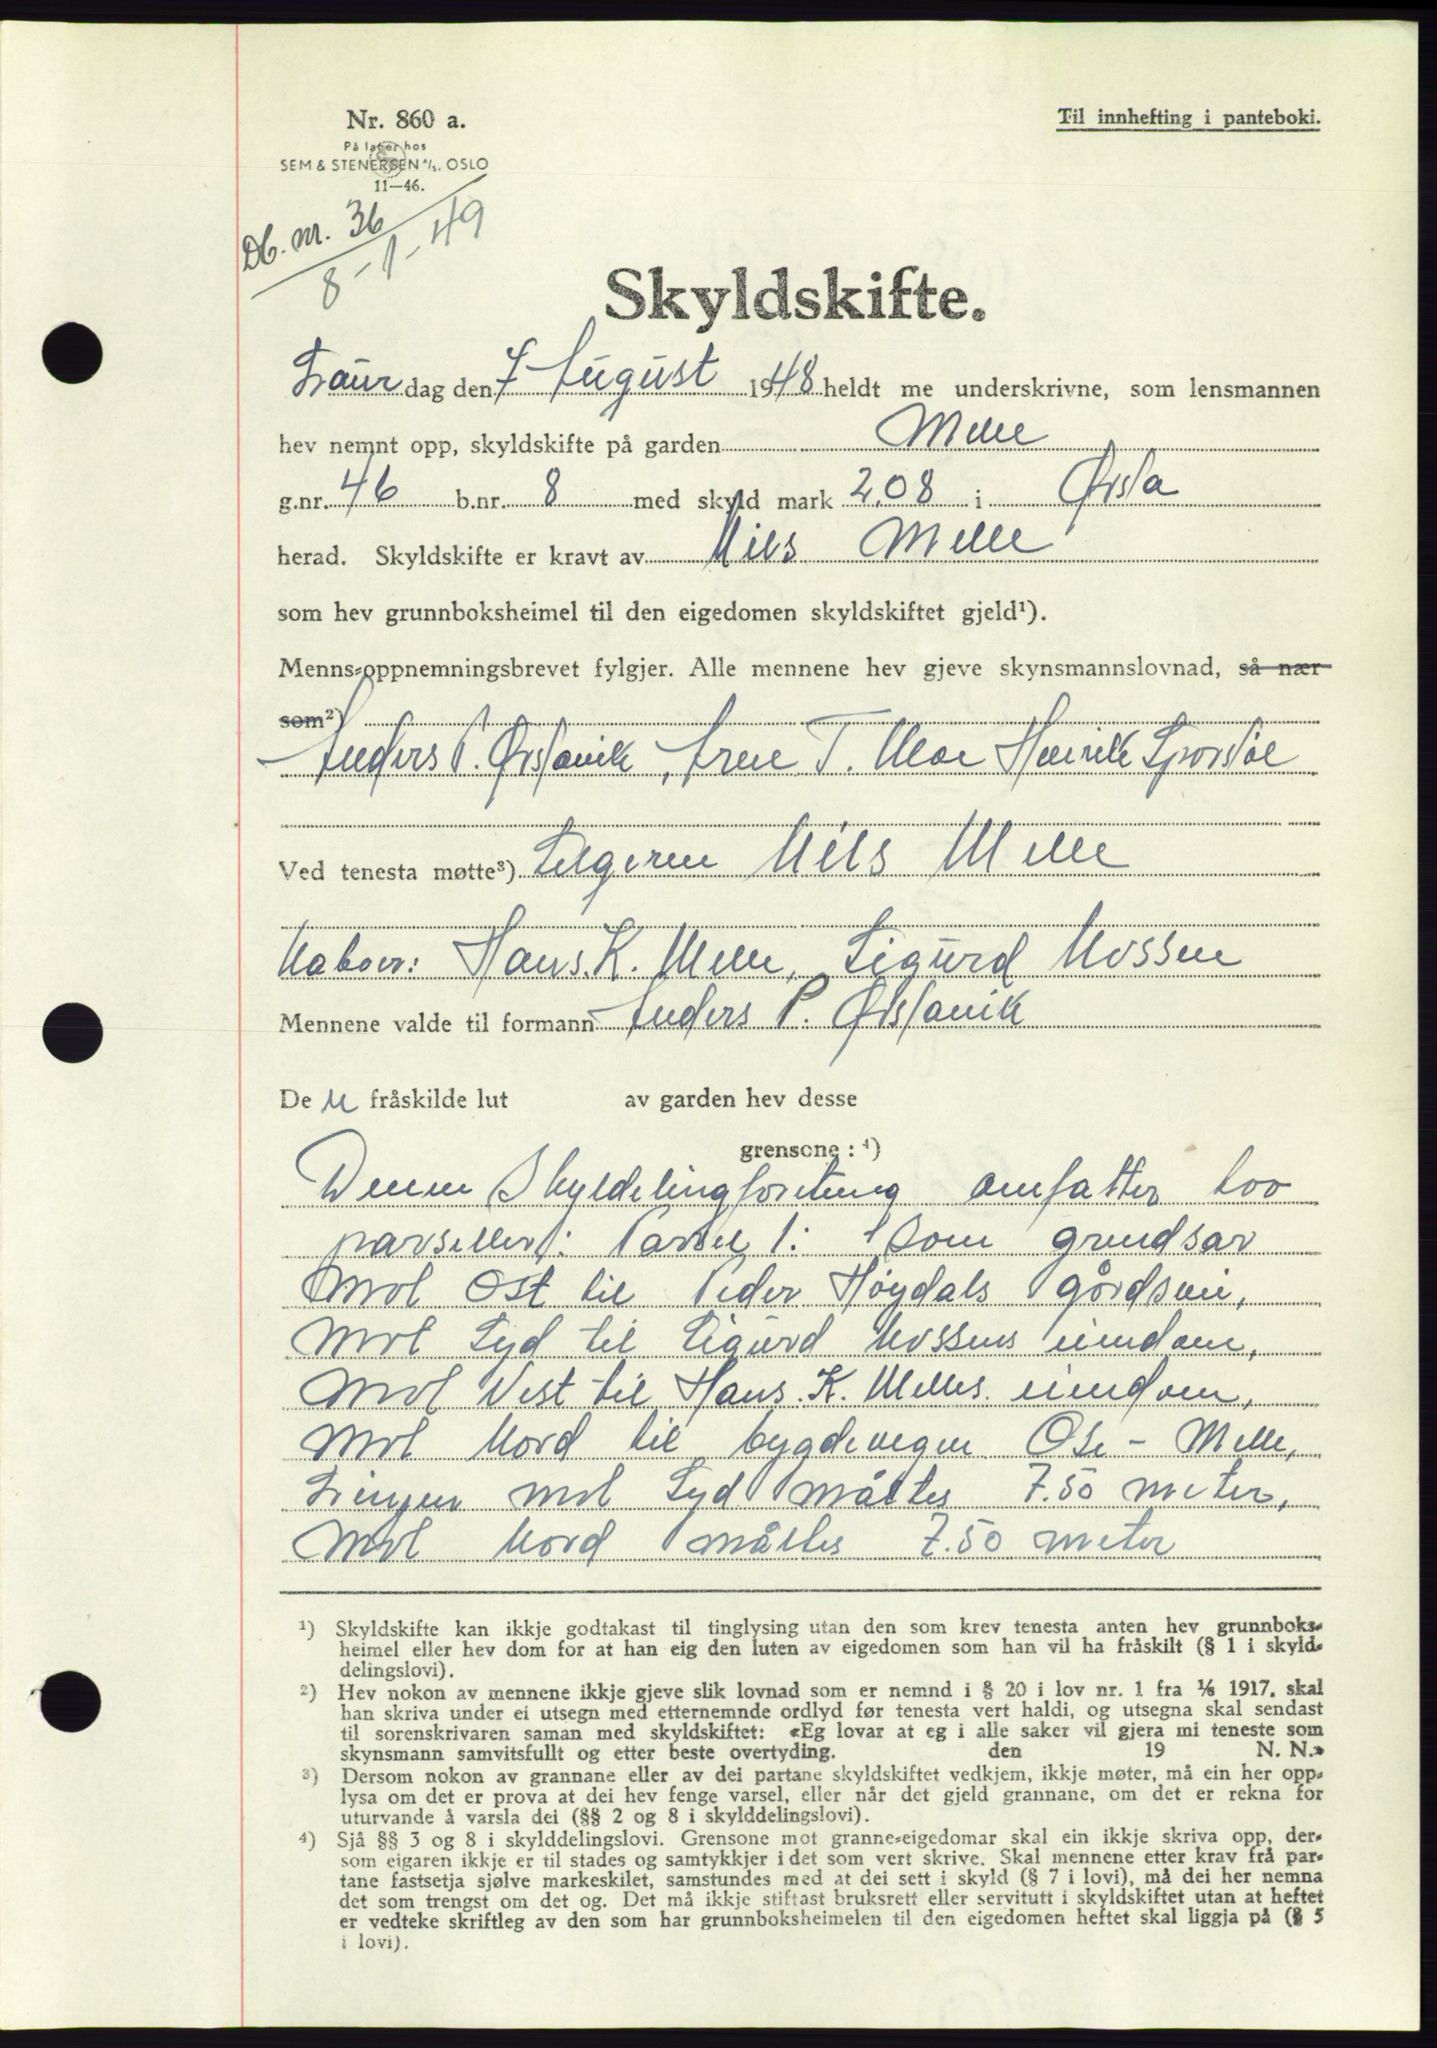 Nr. 860 a.
Til innhefting i panteboki.
På lager hos
SEM & STENERSEN A/S, OSLO
11—46.
Db. nr. 36
8-1-49
Skyldskifte.
Laur dag den 7 August 1948 heldt me underskrivne, som lensmannen
hev nemnt opp, skyldskifte på garden Melle
g.nr. 46 b.nr. 8 med skyld mark 2,08 i Ørsta
herad. Skyldskifte er kravt av Nils Melle
som hev grunnboksheimel til den eigedomen skyldskiftet gjeld¹).
Menns-oppnemningsbrevet fylgjer. Alle mennene hev gjeve skynsmannslovnad, så nær
som²)
Anders P. Ørstavik, T. Moe Henrik
Ved tenesta møtte³) Selgeren Nils Melle
Naboer: Hans. K. Melle, Sigurd Mossen
Mennene valde til formann Anders P. Ørstavik
De n fråskilde lut av garden hev desse
grensone : ⁴)
Denne Skyldelingforetning omfatter too
parseller: Parsel 1: Som grendsar
mot Ost til Peder Høydals gårdsvei,
mot Syd til Sigurd Mossens eiendom,
mot Vest til Hans. K. Melles. eiendom,
mot Nord til bygdevegen Ose - Melle,
Linjen mot Syd måltes 7.50 meter,
mot Nord måltes 7.50 meter
¹) Skyldskifte kan ikkje godtakast til tinglysing utan den som krev tenesta anten hev grunnboks-
heimel eller hev dom for at han eig den luten av eigedomen som han vil ha fråskilt (§ 1 i skyld-
delingslovi).
²) Hev nokon av mennene ikkje gjeve slik lovnad som er nemnd i § 20 i lov nr. 1 fra 1/6 1917, skal
han skriva under ei utsegn med etternemnde ordlyd før tenesta vert haldi, og utsegna skal sendast
til sorenskrivaren saman med skyldskiftet: «Eg lovar at eg i alle saker vil gjera mi teneste som
skynsmann samvitsfullt og etter beste overtyding. den 19 N. N.»
³) Dersom nokon av grannane eller av dei partane skyldskiftet vedkjem, ikkje møter, må ein her opp-
lysa om det er prova at dei hev fenge varsel, eller når det gjeld grannane, om det er rekna for
uturvande å varsla dei (§§ 2 og 8 i skylddelingslovi).
⁴) Sjå §§ 3 og 8 i skylddelingslovi. Grensone mot granne-eigedomar skal ein ikkje skriva opp, der-
som eigaren ikkje er til stades og samtykkjer i det som vert skrive. Skal mennene etter krav frå par-
tane fastsetja sjølve markeskilet, samstundes med at dei sett i skyld (§ 7 i lovi), må dei her nemna
det som trengst om det og. Det må ikkje stiftast bruksrett eller servitutt i skyldskiftet utan at heftet
er vedteke skriftleg av den som har grunnboksheimelen til den eigedomen heftet skal liggja på (§ 5
i lovi).